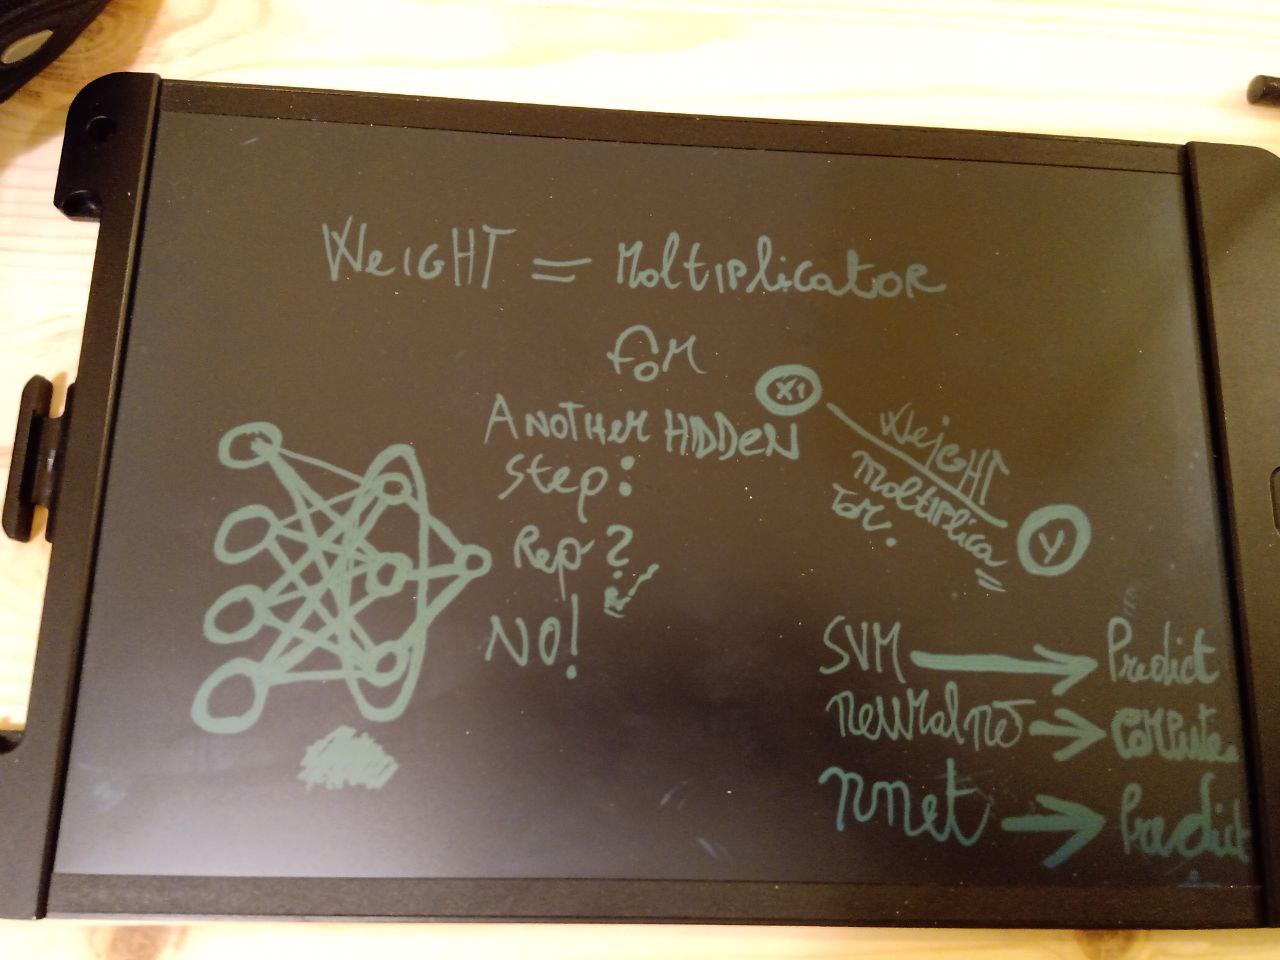 WeIGHT = Moltiplicator
for
ANOTHer HIDDeN
step:
Rep?
NO!
X1
WeIGHT
moltiplica
tor.
Y
SVM → Predict
neuralnet → compute
nnet → Predict